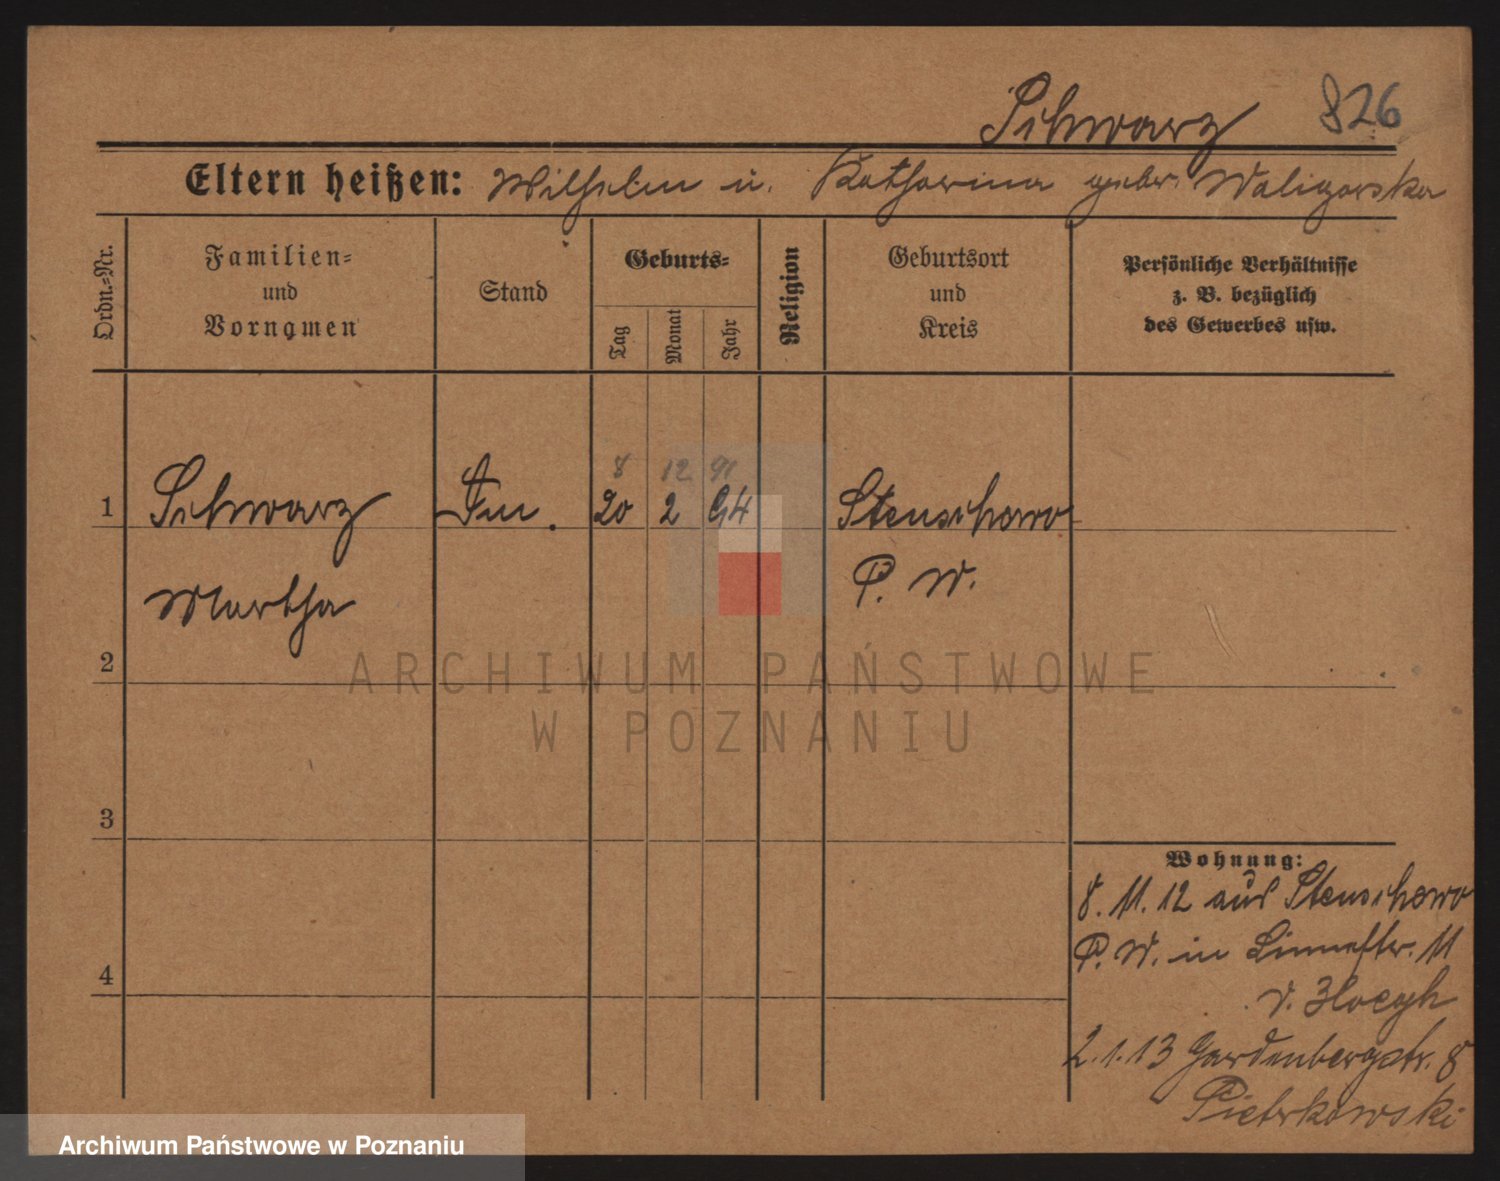 Schwarz 826
Eltern heißen: Wilhelm u. Katharina gebr. Waligorska
Ordn.-Nr.
Familien-
und
Vornamen
Stand
Geburts-
Tag
Monat
Jahr
Religion
Geburtsort
und
Kreis
Persönliche Verhältnisse
z. B. bezüglich
des Gewerbes usw.
8 12 91
1 Schwarz 20 2 94 Stenschewo
Martha P. W.
2
3
4
Wohnung:
8. 11. 12 aus Stenschewo
P. W. in 11
v.
2. 1. 13 Gardenbergstr. 8
Pietrkowski
ARCHIWUM PAŃSTWOWE
W POZNANIU
Archiwum Państwowe w Poznaniu